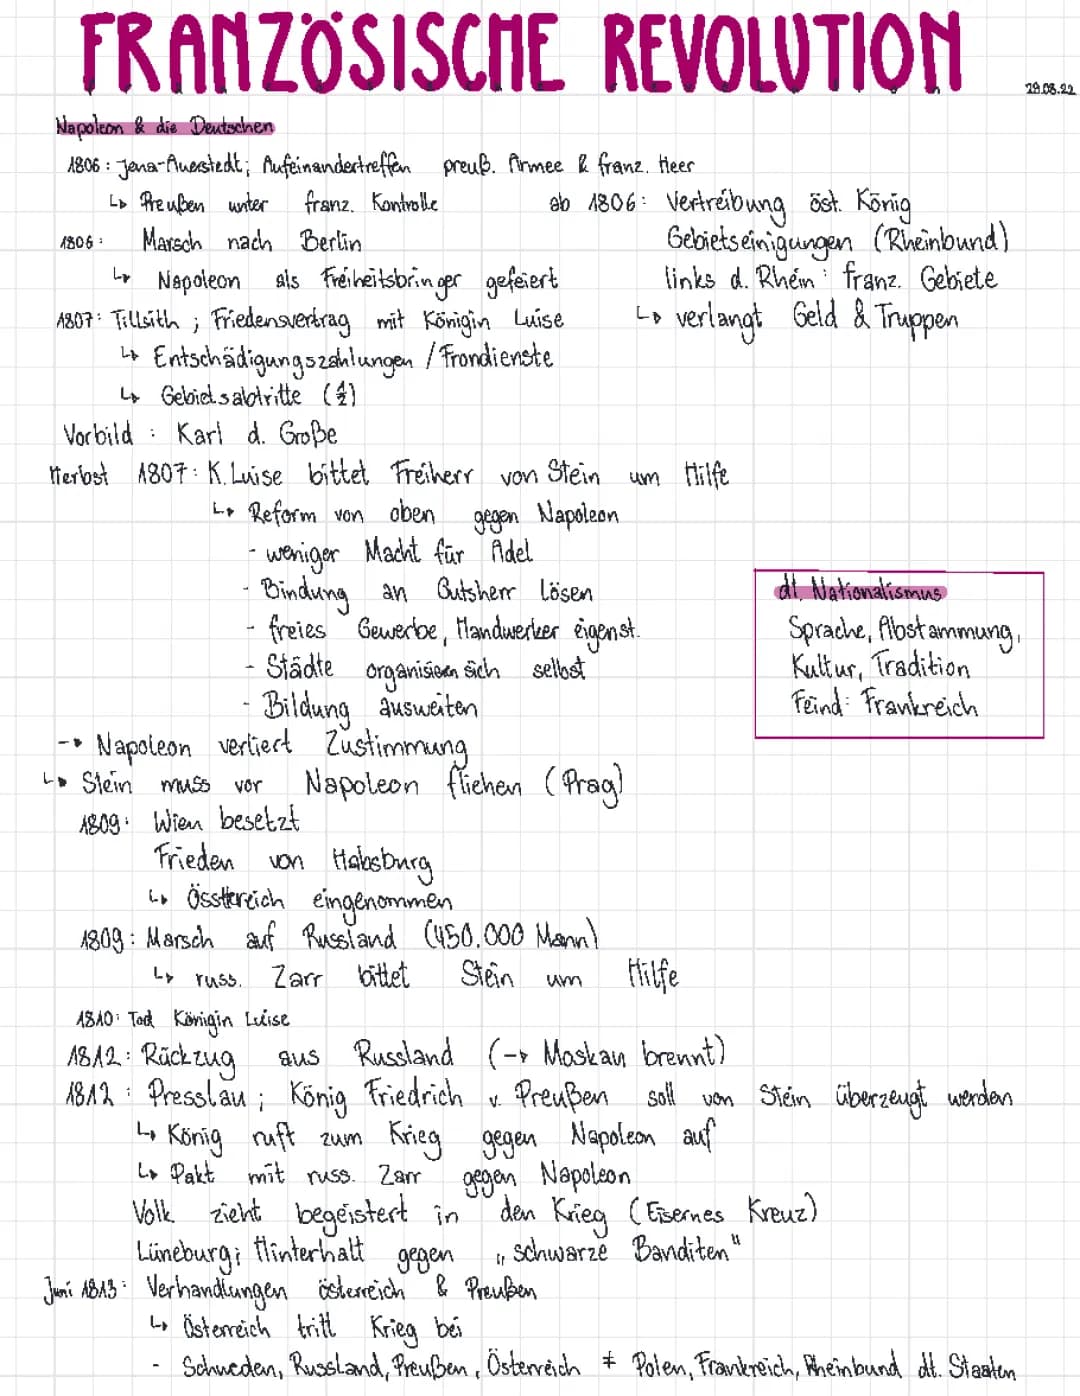 FRANZÖSISCHE REVOLUTION
29.08.22
Napoleon & die Deutschen
1806: Jena-Auerstedt; Aufeinandertreffen preuß. Armee & franz. Heer
↳ Preußen unter franz. Kontrolle
1806: Marsch nach Berlin
↳ Napoleon als Freiheitsbringer gefeiert
1807: Tillsith; Friedensvertrag mit Königin Luise
↳ Entschädigungszahlungen / Frondienste
↳ Gebietsabtritte (1/2)
ab 1806: Vertreibung öst. König
Gebietseinigungen (Rheinbund)
links d. Rhein: franz. Gebiete
↳ verlangt Geld & Truppen
Vorbild: Karl d. Große
Herbst 1807: K. Luise bittet Freiherr von Stein um Hilfe
↳ Reform von oben gegen Napoleon
- weniger Macht für Adel
- Bindung an Gutsherr lösen
- freies Gewerbe, Handwerker eigenst.
- Städte organisieren sich selbst
- Bildung ausweiten
dt. Nationalismus
Sprache, Abstammung,
Kultur, Tradition
Feind: Frankreich
→ Napoleon verliert Zustimmung
↳ Stein muss vor Napoleon fliehen (Prag)
1809: Wien besetzt
Frieden von Habsburg
↳ Össterreich eingenommen
1809: Marsch auf Russland (450.000 Mann)
↳ russ. Zarr bittet Stein um Hilfe
1810: Tod Königin Luise
1812: Rückzug aus Russland (→ Moskau brennt)
1812: Presslau; König Friedrich v. Preußen soll von Stein überzeugt werden
↳ König ruft zum Krieg gegen Napoleon auf
↳ Pakt mit russ. Zarr gegen Napoleon
Volk zieht begeistert in den Krieg (Eisernes Kreuz)
Lüneburg; Hinterhalt gegen „schwarze Banditen"
Juni 1813: Verhandlungen österreich & Preußen
↳ Österreich tritt Krieg bei
- Schweden, Russland, Preußen, Österreich ≠ Polen, Frankreich, Rheinbund dt. Staaten